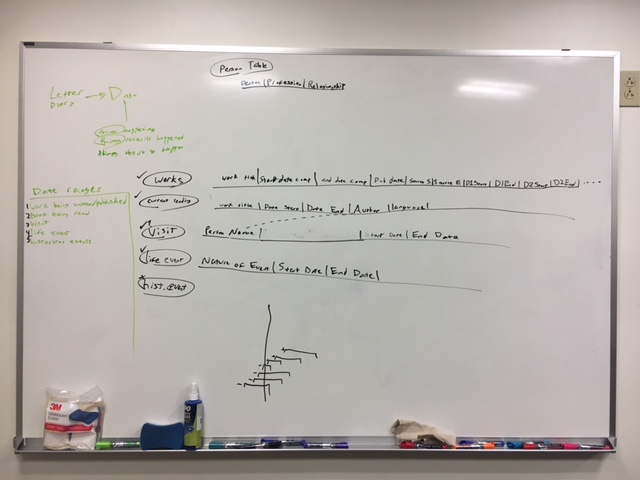 Person Table
Person | Profession | Relationship
Letter → D
Diary
happening
happened
things about to happen
Date ranges
1 work being written/published
2 book being read
3 visit
4 life event
5 historical events
✓ Works
work title | Start date comp | end date comp | Pub date | Source S | Source E | D1Start | D1End | D2Start | D2End | ....
✓ Current reading
work title | Date Start | Date End | Author | language |
✓ Visit
Person Name | | Start Date | End Date
✓ life event
Nature of Event | Start Date | End Date |
hist. event
3M